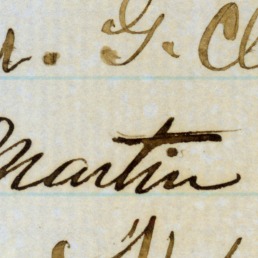 G. Cl
Martin